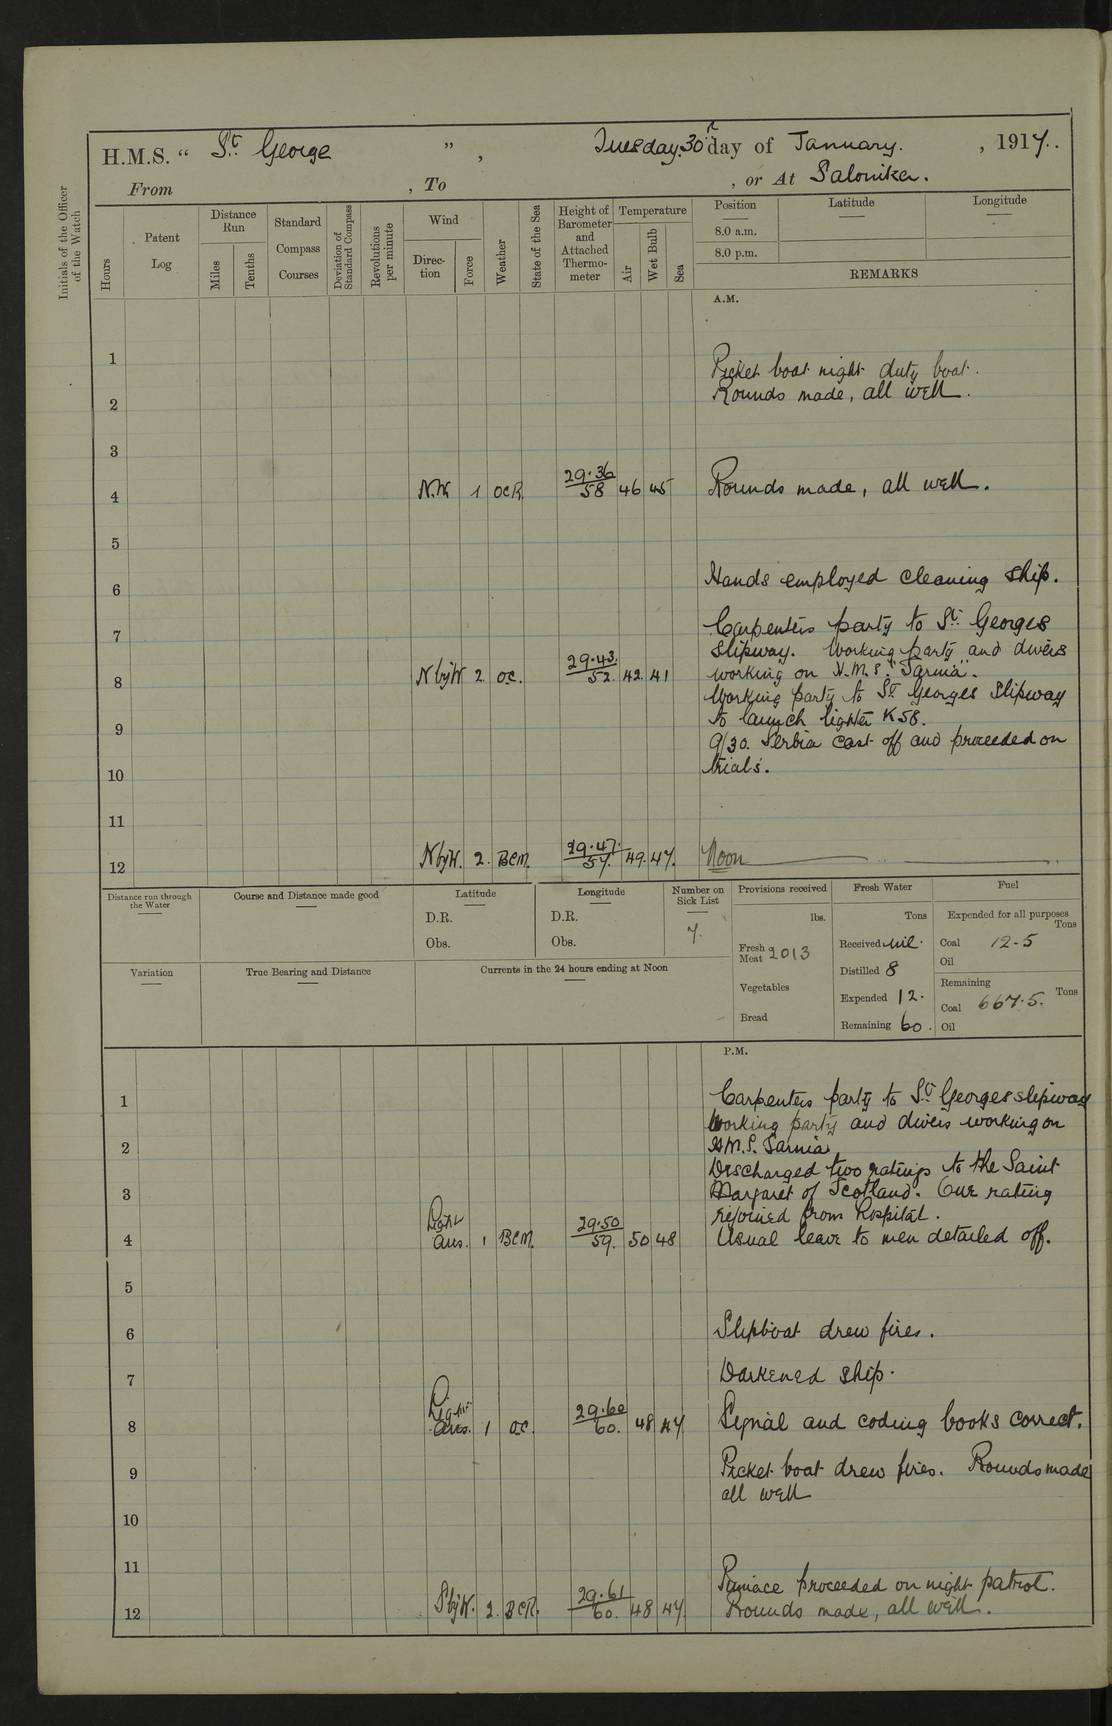 H.M.S. “ St. George ” , Tuesday 30th day of January. , 1917.
From , To , or At Salonika.
Initials of the Officer of the Watch
Hours
Patent Log
Distance Run
Miles
Tenths
Standard Compass Courses
Deviation of Standard Compass
Revolutions per minute
Wind
Direction
Force
Weather
State of the Sea
Height of Barometer and Attached Thermometer
Temperature
Air
Wet Bulb
Sea
Position Latitude Longitude
8.0 a.m.
8.0 p.m.
REMARKS
A.M.
1
Picket boat night duty boat.
2 Rounds made, all well.
3
4 N.W. 1 OCR. 29.36 58 46 45 Rounds made, all well.
5
6 Hands employed cleaning ship.
7 Carpenters party to St. Georges
slipway. Working party and divers
8 NbyW 2 oc. 29.43. 52. 42 41 working on H.M.S. "Sarnia".
Working party to St. Georges Slipway
9 to launch lighter K58.
9/30. Serbia cast off and proceeded on
10 trials.
11
12 NbyW. 2. BCM. 29.47. 57. 49. 47. Noon
Distance run through the Water
Course and Distance made good
Latitude
D.R.
Obs.
Longitude
D.R.
Obs.
Number on Sick List
7.
Provisions received
lbs.
Fresh Meat 2013
Vegetables
Bread
Fresh Water
Tons
Received nil.
Distilled 8
Expended 12.
Remaining 60.
Fuel
Expended for all purposes
Tons
Coal 12.5
Oil
Remaining
Coal 667.5. Tons
Oil
Variation
True Bearing and Distance
Currents in the 24 hours ending at Noon
P.M.
1 Carpenters party to St. Georges slipway
Working party and divers working on
2 H.M.S. Sarnia
Discharged two ratings to the Saint
3 Margaret of Scotland. One rating
rejoined from Hospital.
4 Light airs. 1 BCM. 29.50 59. 50 48 Usual leave to men detailed off.
5
6 Slipboat drew fires.
7 Darkened ship.
8 Light airs. 1 oc. 29.60 60. 48 47 Signal and coding books correct.
9 Picket boat drew fires. Rounds made
all well
10
11
Pinnace proceeded on night patrol.
12 SbyW. 2. BCR. 29.61 60. 48 47 Rounds made, all well.